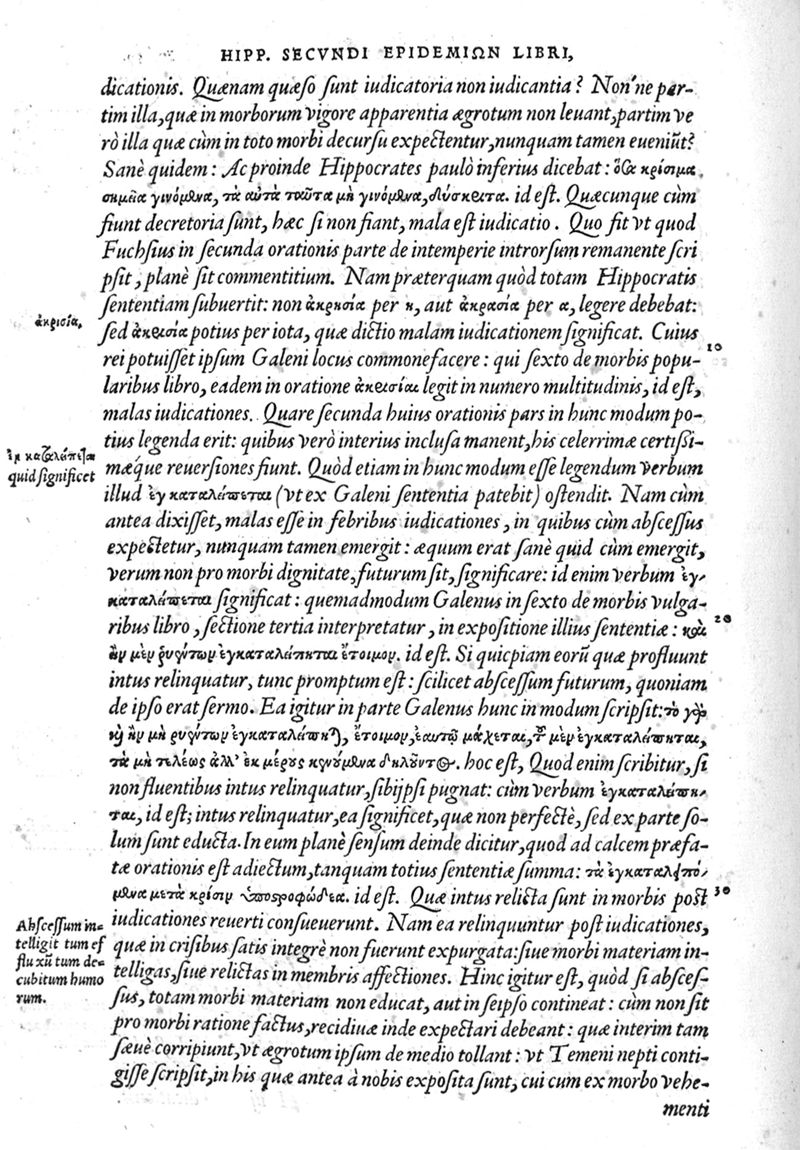 HIPP. SECVNDI EPIDEMIΩN LIBRI,
dicationis. Quænam quæso sunt iudicatoria non iudicantia? Non'ne par-
tim illa, quæ in morborum vigore apparentia ægrotum non leuant, partim ve
rò illa quæ cùm in toto morbi decursu expectentur, nunquam tamen eueniũt?
Sanè quidem: Ac proinde Hippocrates paulò inferius dicebat: ὅσα κρίσιμα
σημεῖα γινόμενα, τὰ αὐτὰ ταῦτα μὴ γινόμενα, δύσκριτα. id est. Quæcunque cùm
fiunt decretoria sunt, hæc si non fiant, mala est iudicatio. Quo fit vt quod
Fuchsius in secunda orationis parte de intemperie introrsum remanente scri
psit, planè sit commentitium. Nam præterquam quòd totam Hippocratis
sententiam subuertit: non ἀκρησία per η, aut ἀκρασία per α, legere debebat:
ἀκρισία,
sed ἀκρισία potius per iota, quæ dictio malam iudicationem significat. Cuius
10
rei potuisset ipsum Galeni locus commonefacere: qui sexto de morbis popu-
laribus libro, eadem in oratione ἀκρισίαι legit in numero multitudinis, id est,
malas iudicationes. Quare secunda huius orationis pars in hunc modum po-
tius legenda erit: quibus verò interius inclusa manent, his celerrimæ certißi-
quid significet
mæque reuersiones fiunt. Quòd etiam in hunc modum esse legendum verbum
illud ἐγκαταλείπεται (vt ex Galeni sententia patebit) ostendit. Nam cùm
antea dixisset, malas esse in febribus iudicationes, in quibus cùm abscessus
expectetur, nunquam tamen emergit: æquum erat sanè quid cùm emergit,
verum non pro morbi dignitate, futurum sit, significare: id enim verbum ἐγ-
καταλείπεται significat: quemadmodum Galenus in sexto de morbis vulga-
20
ribus libro, sectione tertia interpretatur, in expositione illius sententiæ: καὶ
ἢν μὲν ῥυέντων ἐγκαταλείπηται ἕτοιμον. id est. Si quicpiam eorũ quæ profluunt
intus relinquatur, tunc promptum est: scilicet abscessum futurum, quoniam
de ipso erat sermo. Ea igitur in parte Galenus hunc in modum scripsit: τὸ γὰρ
ἢν μὴ ῥυέντων ἐγκαταλείπηται, ἕτοιμον, ἑαυτῷ μάχεται, τοῦ μὲν ἐγκαταλείπηται,
τὰ μὴ τελέως ἀλλ' ἐκ μέρους κενούμενα δηλοῦντος. hoc est, Quod enim scribitur, si
non fluentibus intus relinquatur, sibijpsi pugnat: cùm verbum ἐγκαταλείπη-
ται, id est; intus relinquatur, ea significet, quæ non perfectè, sed ex parte so-
lum sunt educta. In eum planè sensum deinde dicitur, quod ad calcem præfa-
tæ orationis est adiectum, tanquam totius sententiæ summa: τὰ ἐγκαταλιμπό-
μενα μετὰ κρίσιν ὑποστροφώδεα. id est. Quæ intus relicta sunt in morbis post
30
iudicationes reuerti consueuerunt. Nam ea relinquuntur post iudicationes,
Abscessum in-
telligit tum ef
fluxũ tum de-
cubitum humo
rum.
quæ in crisibus satis integrè non fuerunt expurgata: siue morbi materiam in-
telligas, siue relictas in membris affectiones. Hinc igitur est, quòd si absces-
sus, totam morbi materiam non educat, aut in seipso contineat: cùm non sit
pro morbi ratione factus, recidiuæ inde expectari debeant: quæ interim tam
sæuè corripiunt, vt ægrotum ipsum de medio tollant: vt Temeni nepti conti-
gisse scripsit, in his quæ antea à nobis exposita sunt, cui cum ex morbo vehe-
menti